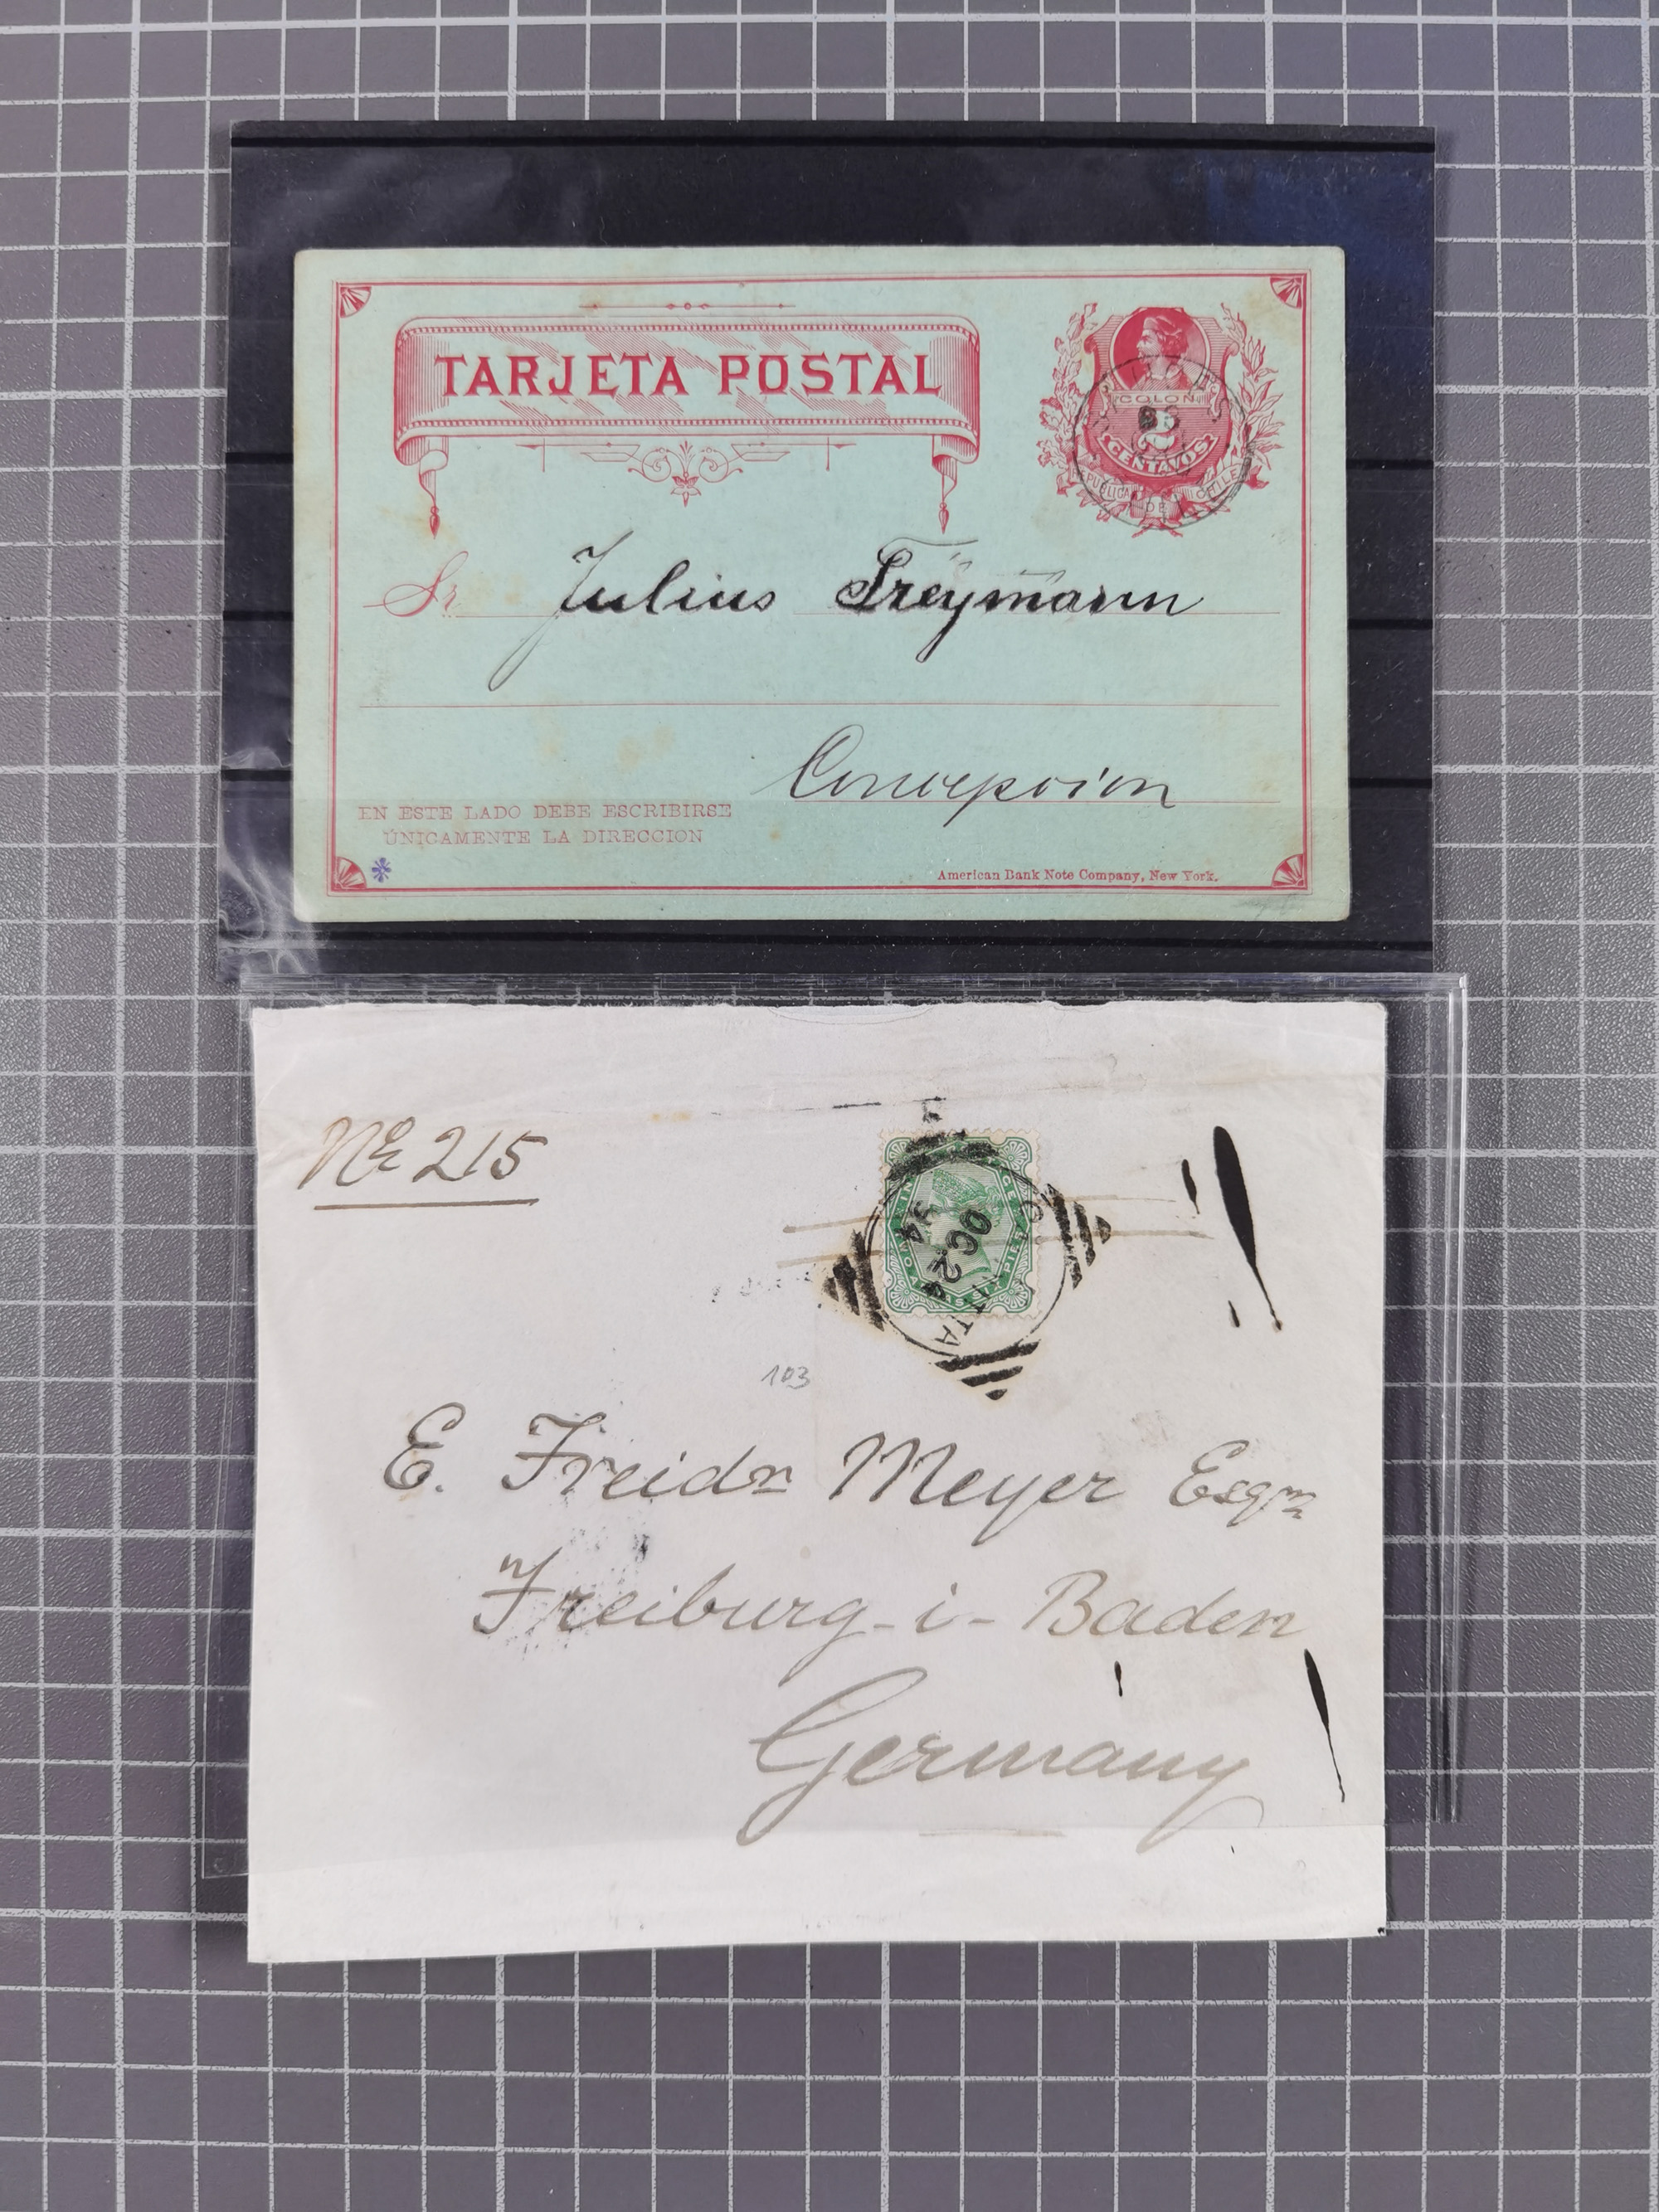 TARJETA POSTAL
COLON
2
CENTAVOS
DE CHILE
Sr. Julius Treymann
Concepcion
EN ESTE LADO DEBE ESCRIBIRSE
ÚNICAMENTE LA DIRECCION
American Bank Note Company, New York.
No 215
OC 24
94
103
E. Freidr Meyer Esqr
Freiburg-i-Baden
Germany